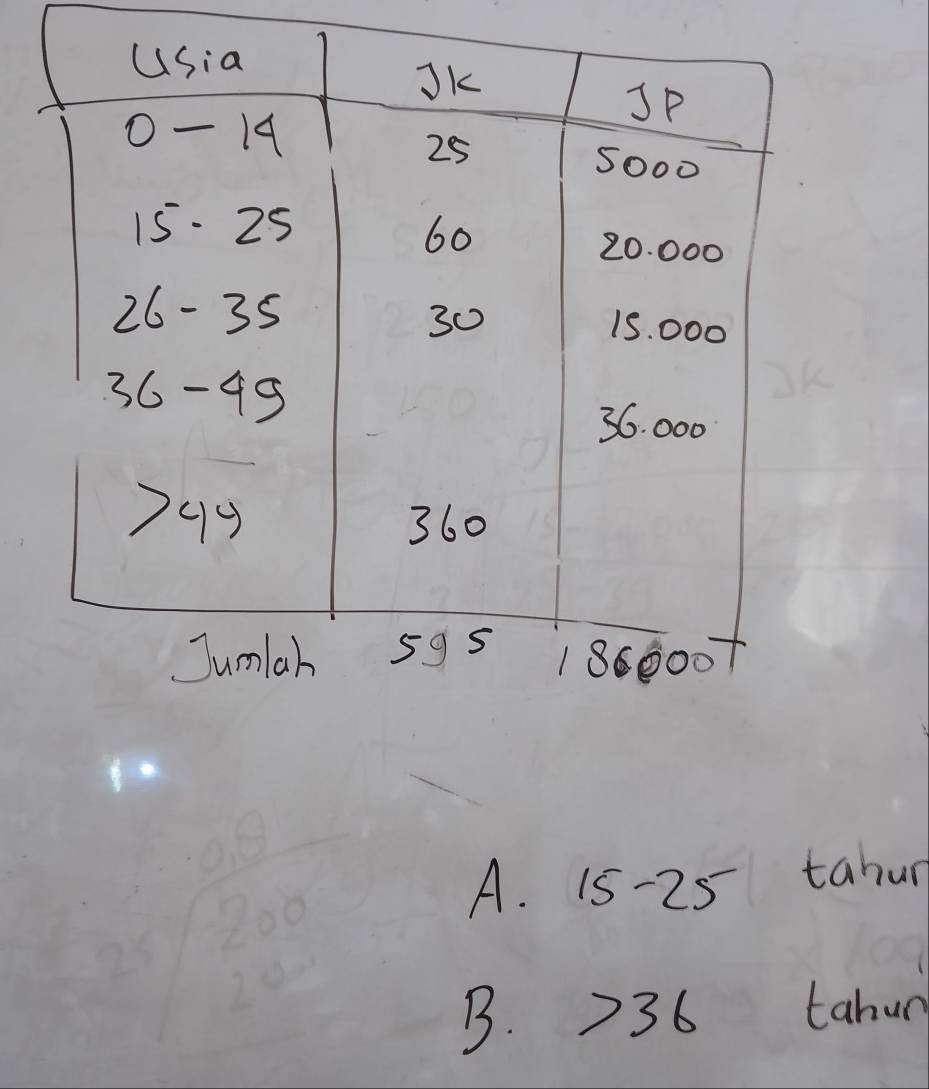 Usia JK JP
0 - 14 25 5000
15 - 25 60 20.000
26 - 35 30 15.000
36 - 49 36.000
>49 360
Jumlah 595 186000
A. 15-25 tahun
B. >36 tahun